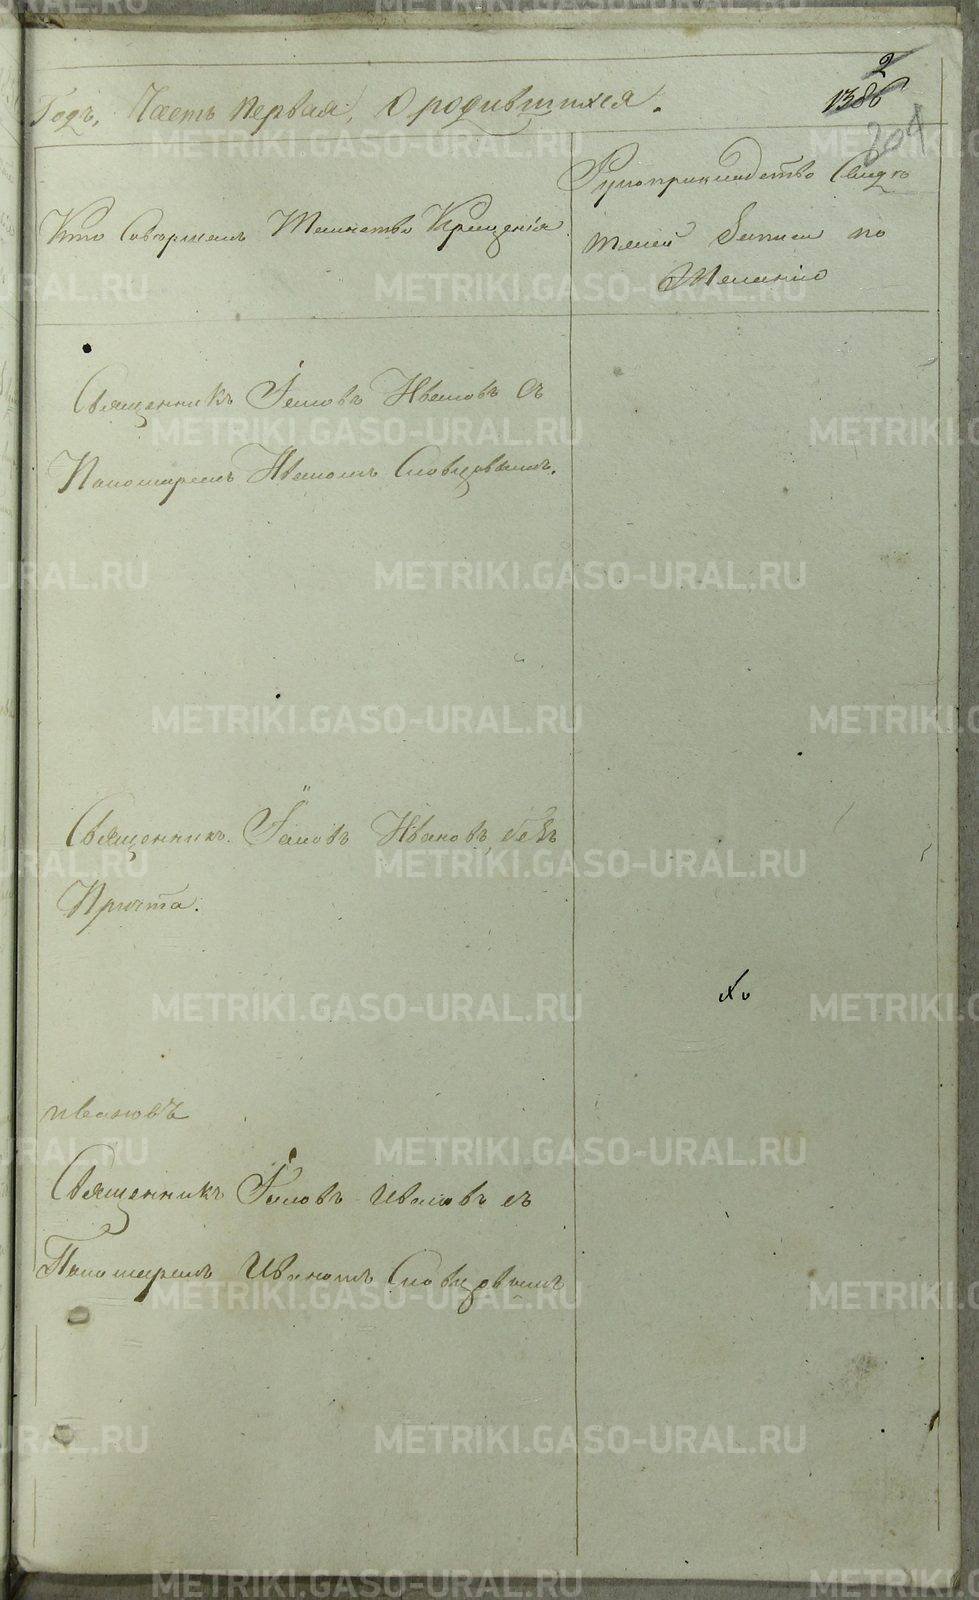 2
1386
204
Годъ, Часть первая, О родившихся.
Кто Совершалъ Таинство Крещенія
Рукоприкладство Свидѣ
телей Записи по
Желанію
Священникъ Іаковъ Ивановъ Съ
Пономаремъ Иваномъ Словцовымъ.
Священникъ. Іаковъ Ивановъ, безъ
Причта.
ивановъ
Священникъ Іаковъ Ивановъ съ
Пономаремъ Иваномъ Словцовымъ
METRIKI.GASO-URAL.RU